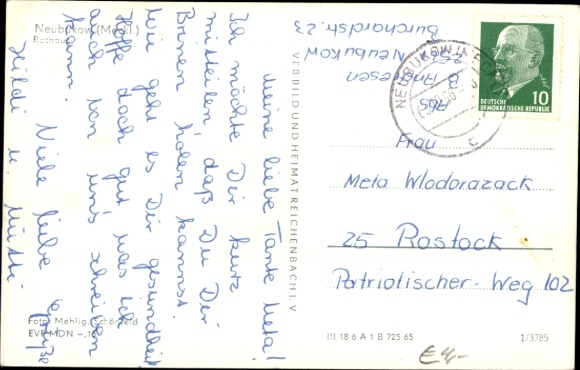 Neubukow (Meckl.)
Rathaus
Meine liebe Tante Meta!
Ich möchte Dir kurz
mitteilen, daß Du Dir
Birnen holen kannst.
Wie geht es Dir gesundheitl.
Hoffe doch gut was ich
auch von uns schreiben
kann.
Viele liebe Grüße
Heidi u. Mutti
Foto: Mehlig, Schönfeld
EVP MDN -.10
VERBILD UND HEIMAT REICHENBACH I. V.
Abs
B. Andresen
Neubukow
Burchardstr. 23
NEUBUKOW (MECKL)
c
DEUTSCHE
DEMOKRATISCHE REPUBLIK
10
Frau
Meta Wlodorazack
25 Rostock
Patriotischer-Weg 102
III/18 6 A 1 B 725 65
1/3785
€4,-